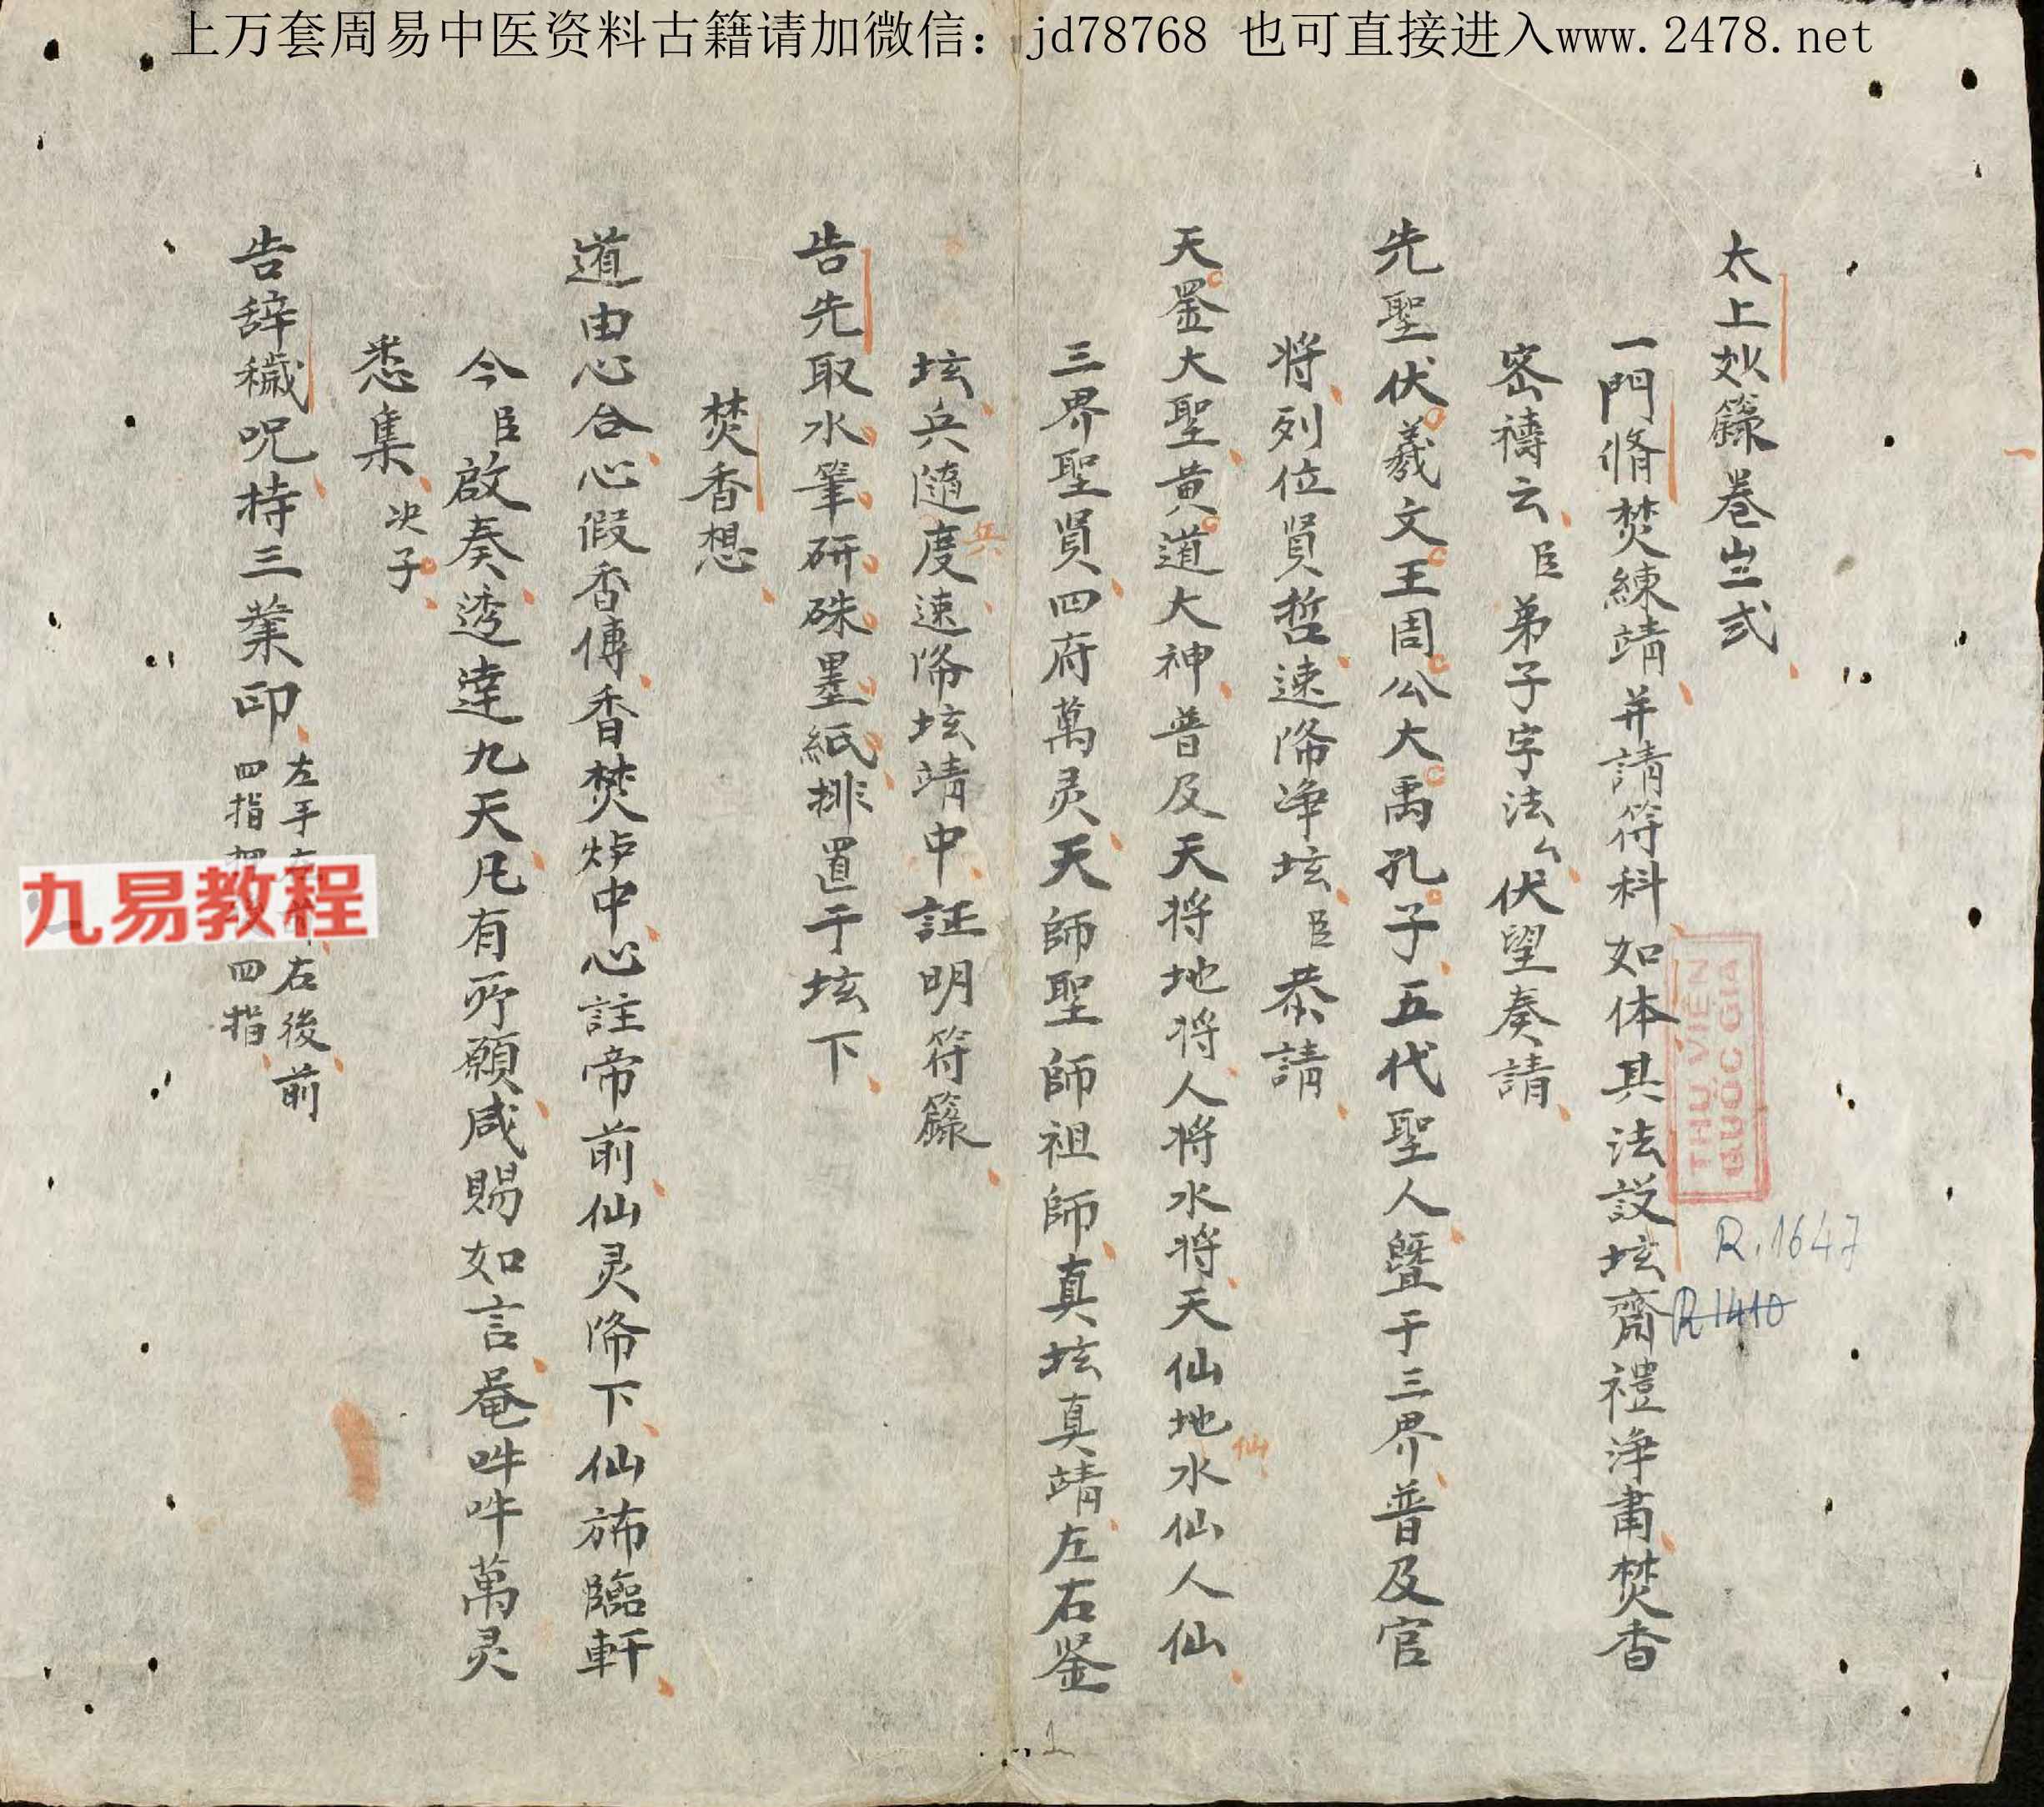 上万套周易中医资料古籍请加微信：jd78768 也可直接进入www.2478.net
太上妙籙卷弍
一門脩焚練靖并請符科如体其法設坛齋禮净肅焚香
密禱云臣弟子字法厶伏望奏請
先聖伏羲文王周公大禹孔子五代聖人暨于三界普及官
将列位賢哲速降净坛臣恭請
天罡大聖黄道大神普及天将地将人将水将天仙地水仙人仙
仙
三界聖賢四府萬灵天師聖師祖師真坛真靖左右鉴
坛兵隨度速降坛靖中証明符籙
兵
告先取水筆研硃墨紙排置于坛下
焚香想
道由心合心假香傳香焚炉中心註帝前仙灵降下仙斾臨軒
今臣啟奏透達九天凡有所願咸賜如言菴吽吽萬灵
悉集决子
告辞穢呪持三業印
左手右後前
四指四指
THƯ VIỆN
QUỐC GIA
R.1647
R1410
九易教程
1